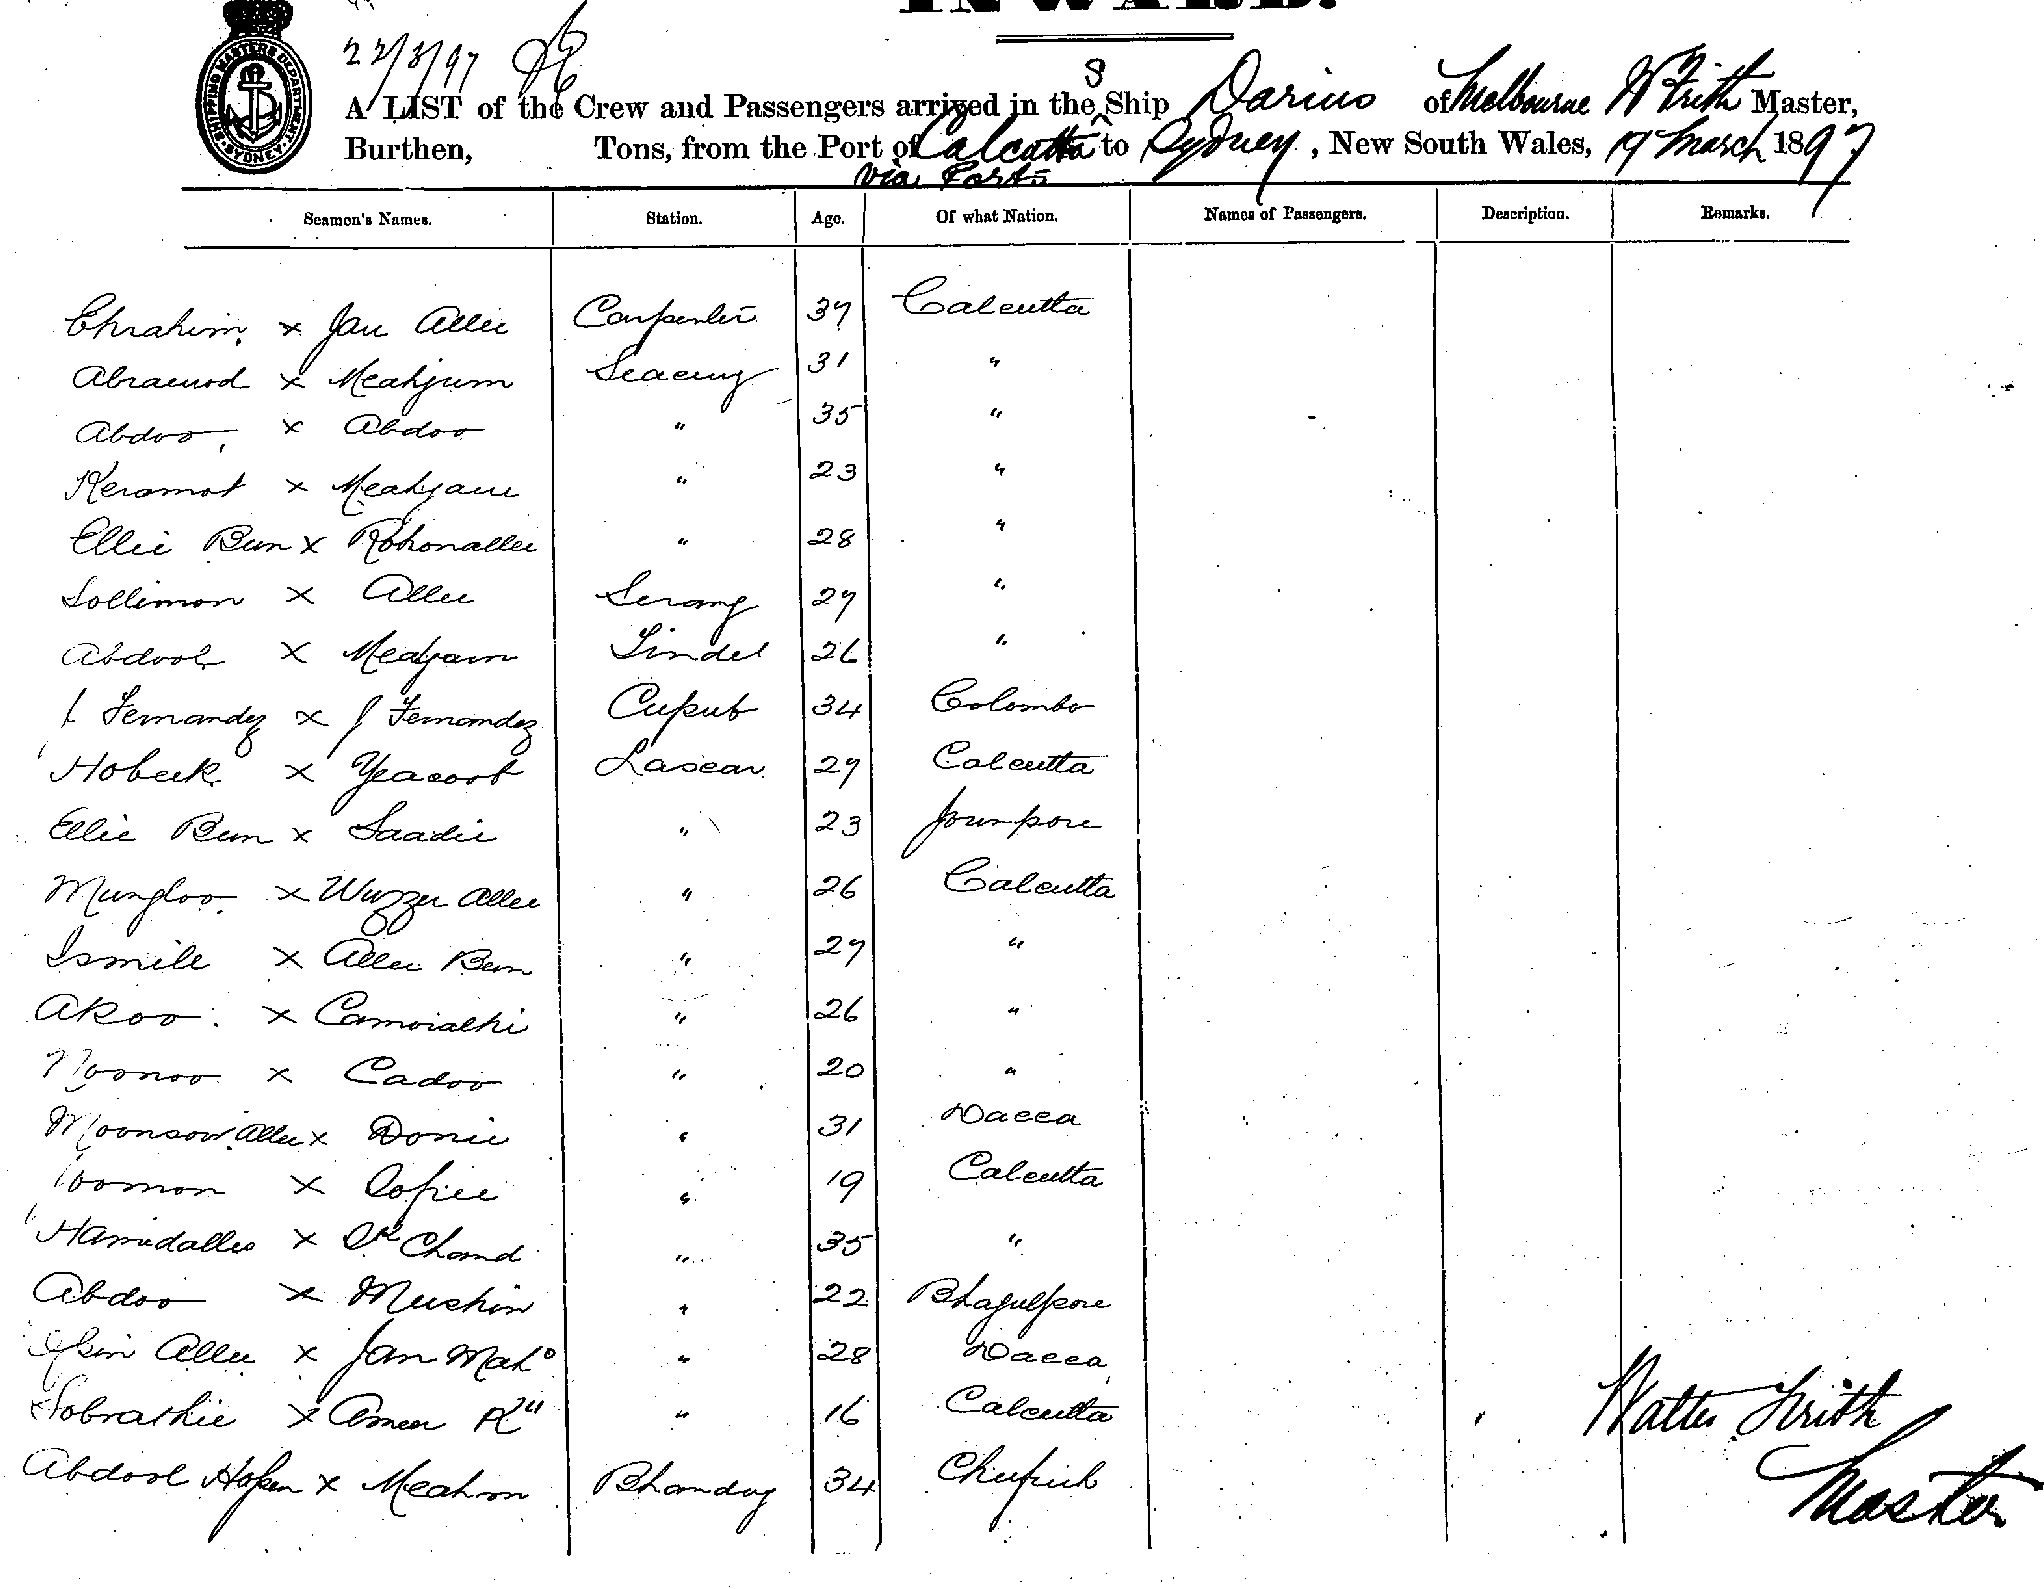 INWARD.
22/3/97
SHIPPING MASTERS DEPARTMENT SYDNEY
A LIST of the Crew and Passengers arrived in the S Ship Darius of Melbourne W Frith Master,
Burthen, Tons, from the Port of Calcutta to Sydney, New South Wales, 19 March 1897
via Ports
Seamen's Names. Station. Age. Of what Nation. Names of Passengers. Description. Remarks.
Ebrahim x Jan Allee Carpenter 37 Calcutta
x Meahjum Seacuny 31 "
Abdoo x Abdoo " 35 "
Keramot x Meahjaun " 23 "
Ellie Bun x Rohonallee " 28 "
Sollimon x Allee Serang 27 "
Abdool x Meajam Tindel 26 "
Fernandez x J Fernandez 34 Colombo
Hobeek x Yeacoob Lascar 27 Calcutta
Ellie Bun x Saadie " 23 Jounpore
Mungloo x Wuzzer Allee " 26 Calcutta
Ismile x Allee Bun " 27 "
Akoo x " 26 "
Noonoo x Cadoo " 20 "
Allee x Donie " 31 Dacca
x " 19 Calcutta
Hamidallee x Chand " 35 "
Abdoo x Mushin " 22 Bhagulpore
Allee x Jan Maho " 28 Dacca
Sobrathie x Ameer Kn " 16 Calcutta
Abdool x Meahon Bhandary 34
Walter Frith
Master